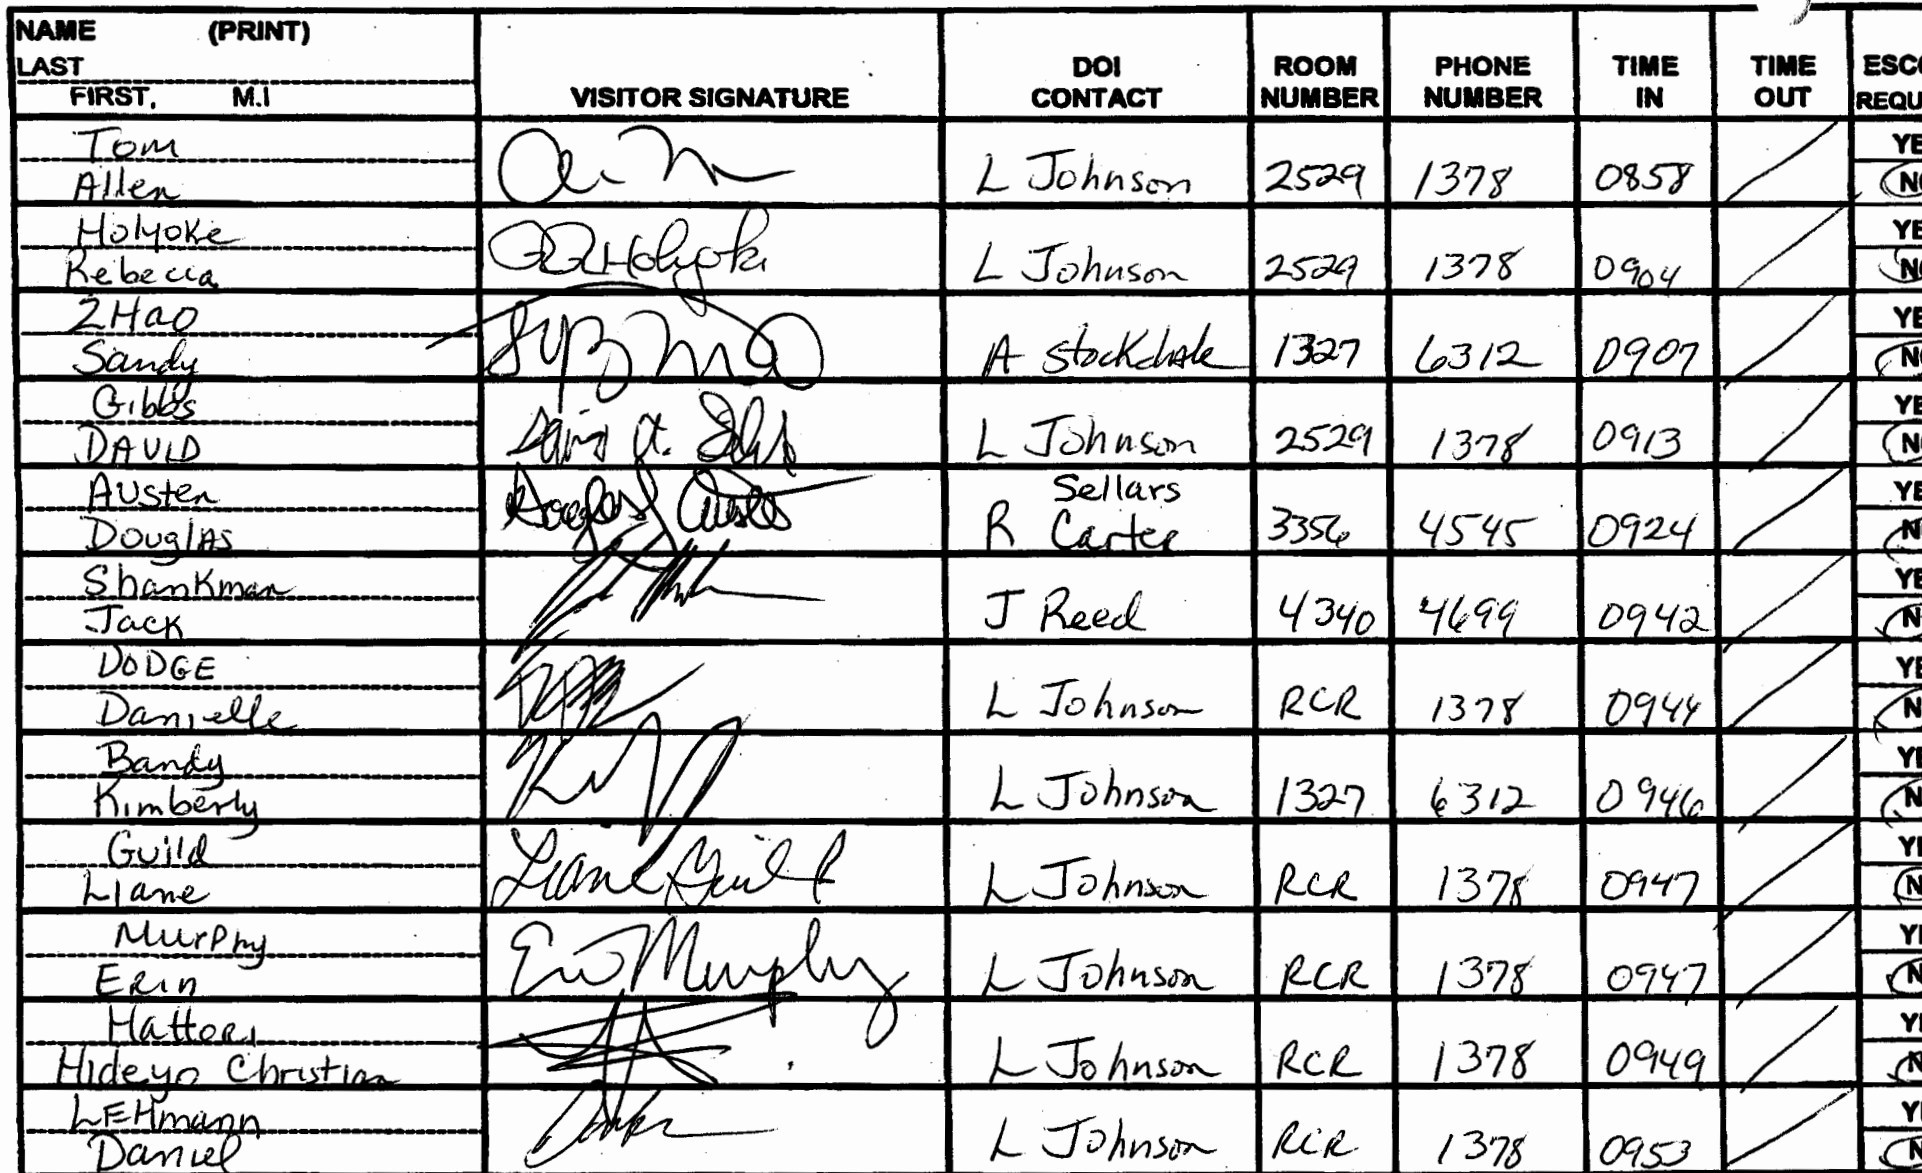 NAME (PRINT)
LAST
FIRST, M.I
VISITOR SIGNATURE
DOI CONTACT
ROOM NUMBER
PHONE NUMBER
TIME IN
TIME OUT
Tom
Allen L Johnson 2529 1378 0858
Holyoke
Rebecca Holyoke L Johnson 2529 1378 0904
ZHao
Sandy A Stockdale 1327 6312 0907
Gibbs
DAVID L Johnson 2529 1378 0913
Austen Sellars
Douglas R Carter 3356 4545 0924
Shankman
Jack J Reed 4340 4699 0942
DODGE
Danielle L Johnson RCR 1378 0944
Bandy
Kimberly L Johnson 1327 6312 0946
Guild
Liane Liane Guild L Johnson RCR 1378 0947
Murphy
Erin Erin Murphy L Johnson RCR 1378 0947
Hattori
Hideyo Christian L Johnson RCR 1378 0949
LEHmann
Daniel L Johnson RCR 1378 0953